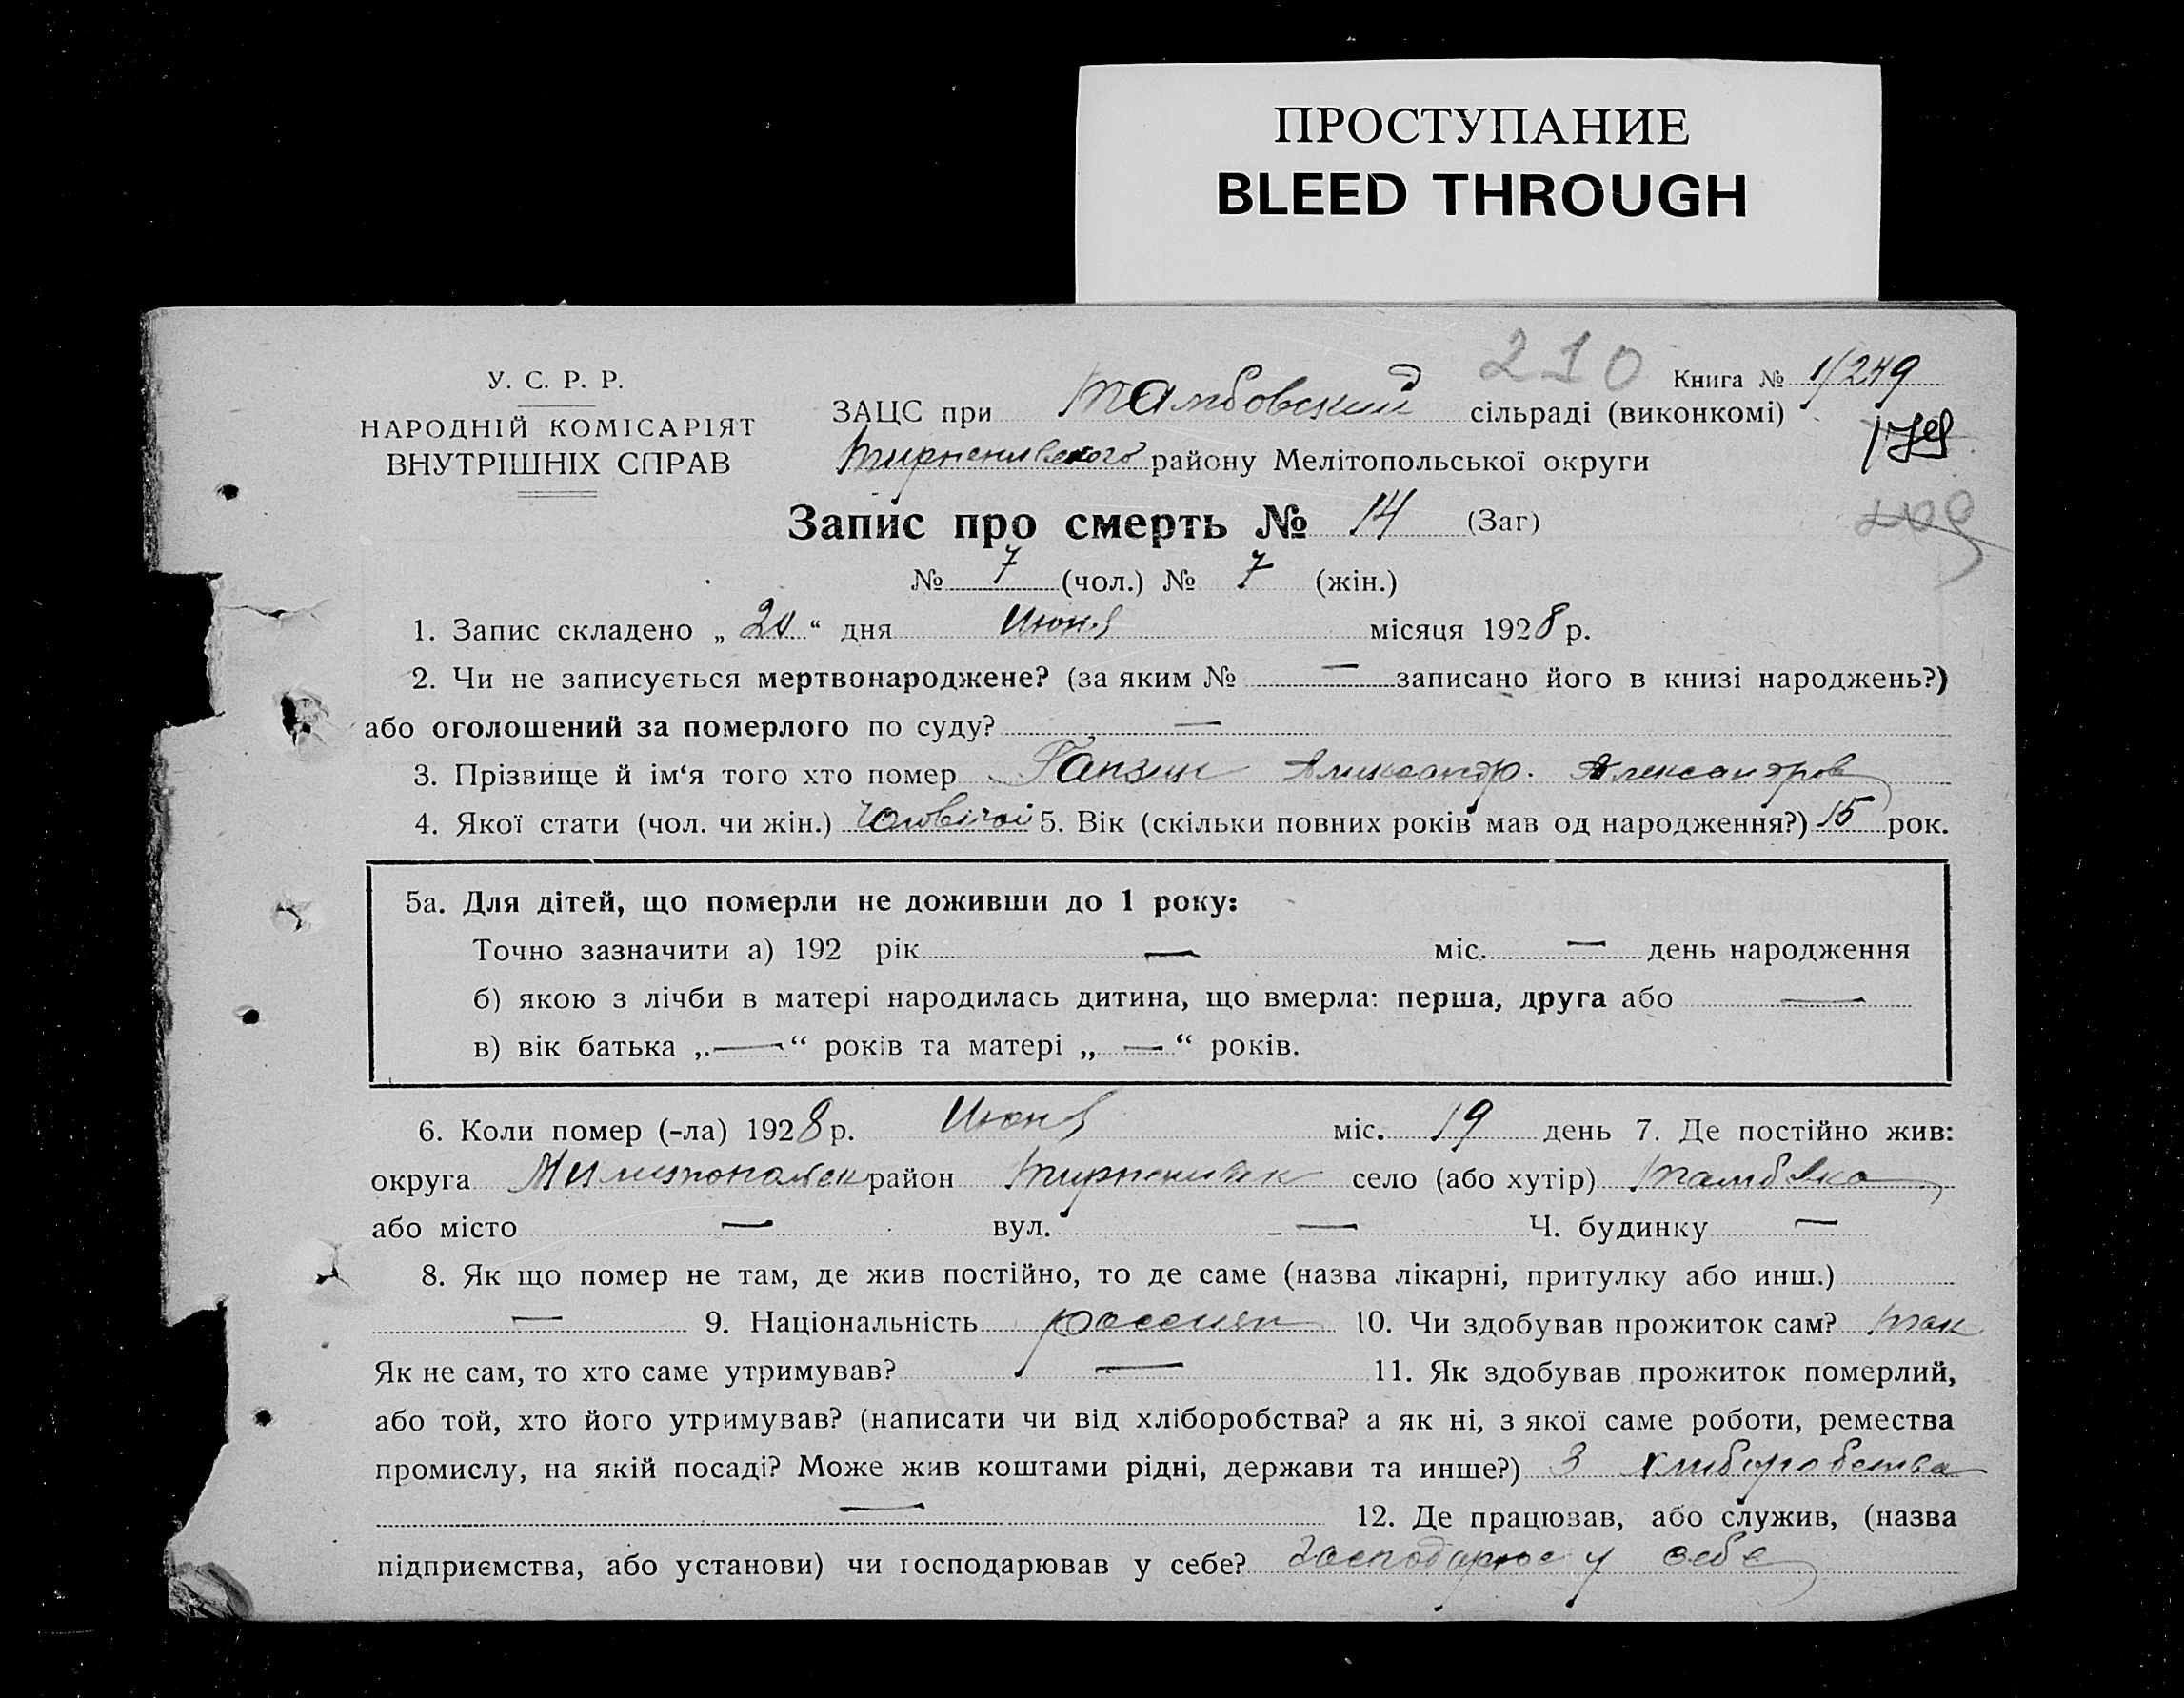 ПРОСТУПАНИЕ
BLEED THROUGH
210
У. С. Р. Р.
НАРОДНІЙ КОМІСАРІЯТ
ВНУТРІШНІХ СПРАВ
Книга № 1/249
ЗАЦС при Тамбовский сільраді (виконкомі)
району Мелітопольської округи
209
Запис про смерть № 14 (Заг)
№ 7 (чол.) № 7 (жін.)
1. Запис складено „ 20 “ дня Июня місяця 1928 р.
2. Чи не записується мертвонароджене? (за яким № — записано його в книзі народжень?)
або оголошений за померлого по суду? —
3. Прізвище й ім‘я того хто помер Ганзин Александр. Александров
4. Якої стати (чол. чи жін.) 5. Вік (скільки повних років мав од народження?) 15 рок.
5а. Для дітей, що померли не доживши до 1 року:
Точно зазначити а) 192 рік — міс. — день народження
б) якою з лічби в матері народилась дитина, що вмерла: перша, друга або —
в) вік батька „ — “ років та матері „ — “ років.
6. Коли помер (-ла) 1928 р. Июня міс. 19 день 7. Де постійно жив:
округа район село (або хутір)
або місто — вул. — Ч. будинку —
8. Як що помер не там, де жив постійно, то де саме (назва лікарні, притулку або инш.)
— 9. Національність 10. Чи здобував прожиток сам? так
Як не сам, то хто саме утримував? — 11. Як здобував прожиток померлий,
або той, хто його утримував? (написати чи від хліборобства? а як ні, з якої саме роботи, ремества
промислу, на якій посаді? Може жив коштами рідні, держави та инше?) З хлиборобства
— 12. Де працював, або служив, (назва
підприємства, або установи) чи господарював у себе? господарює у себе